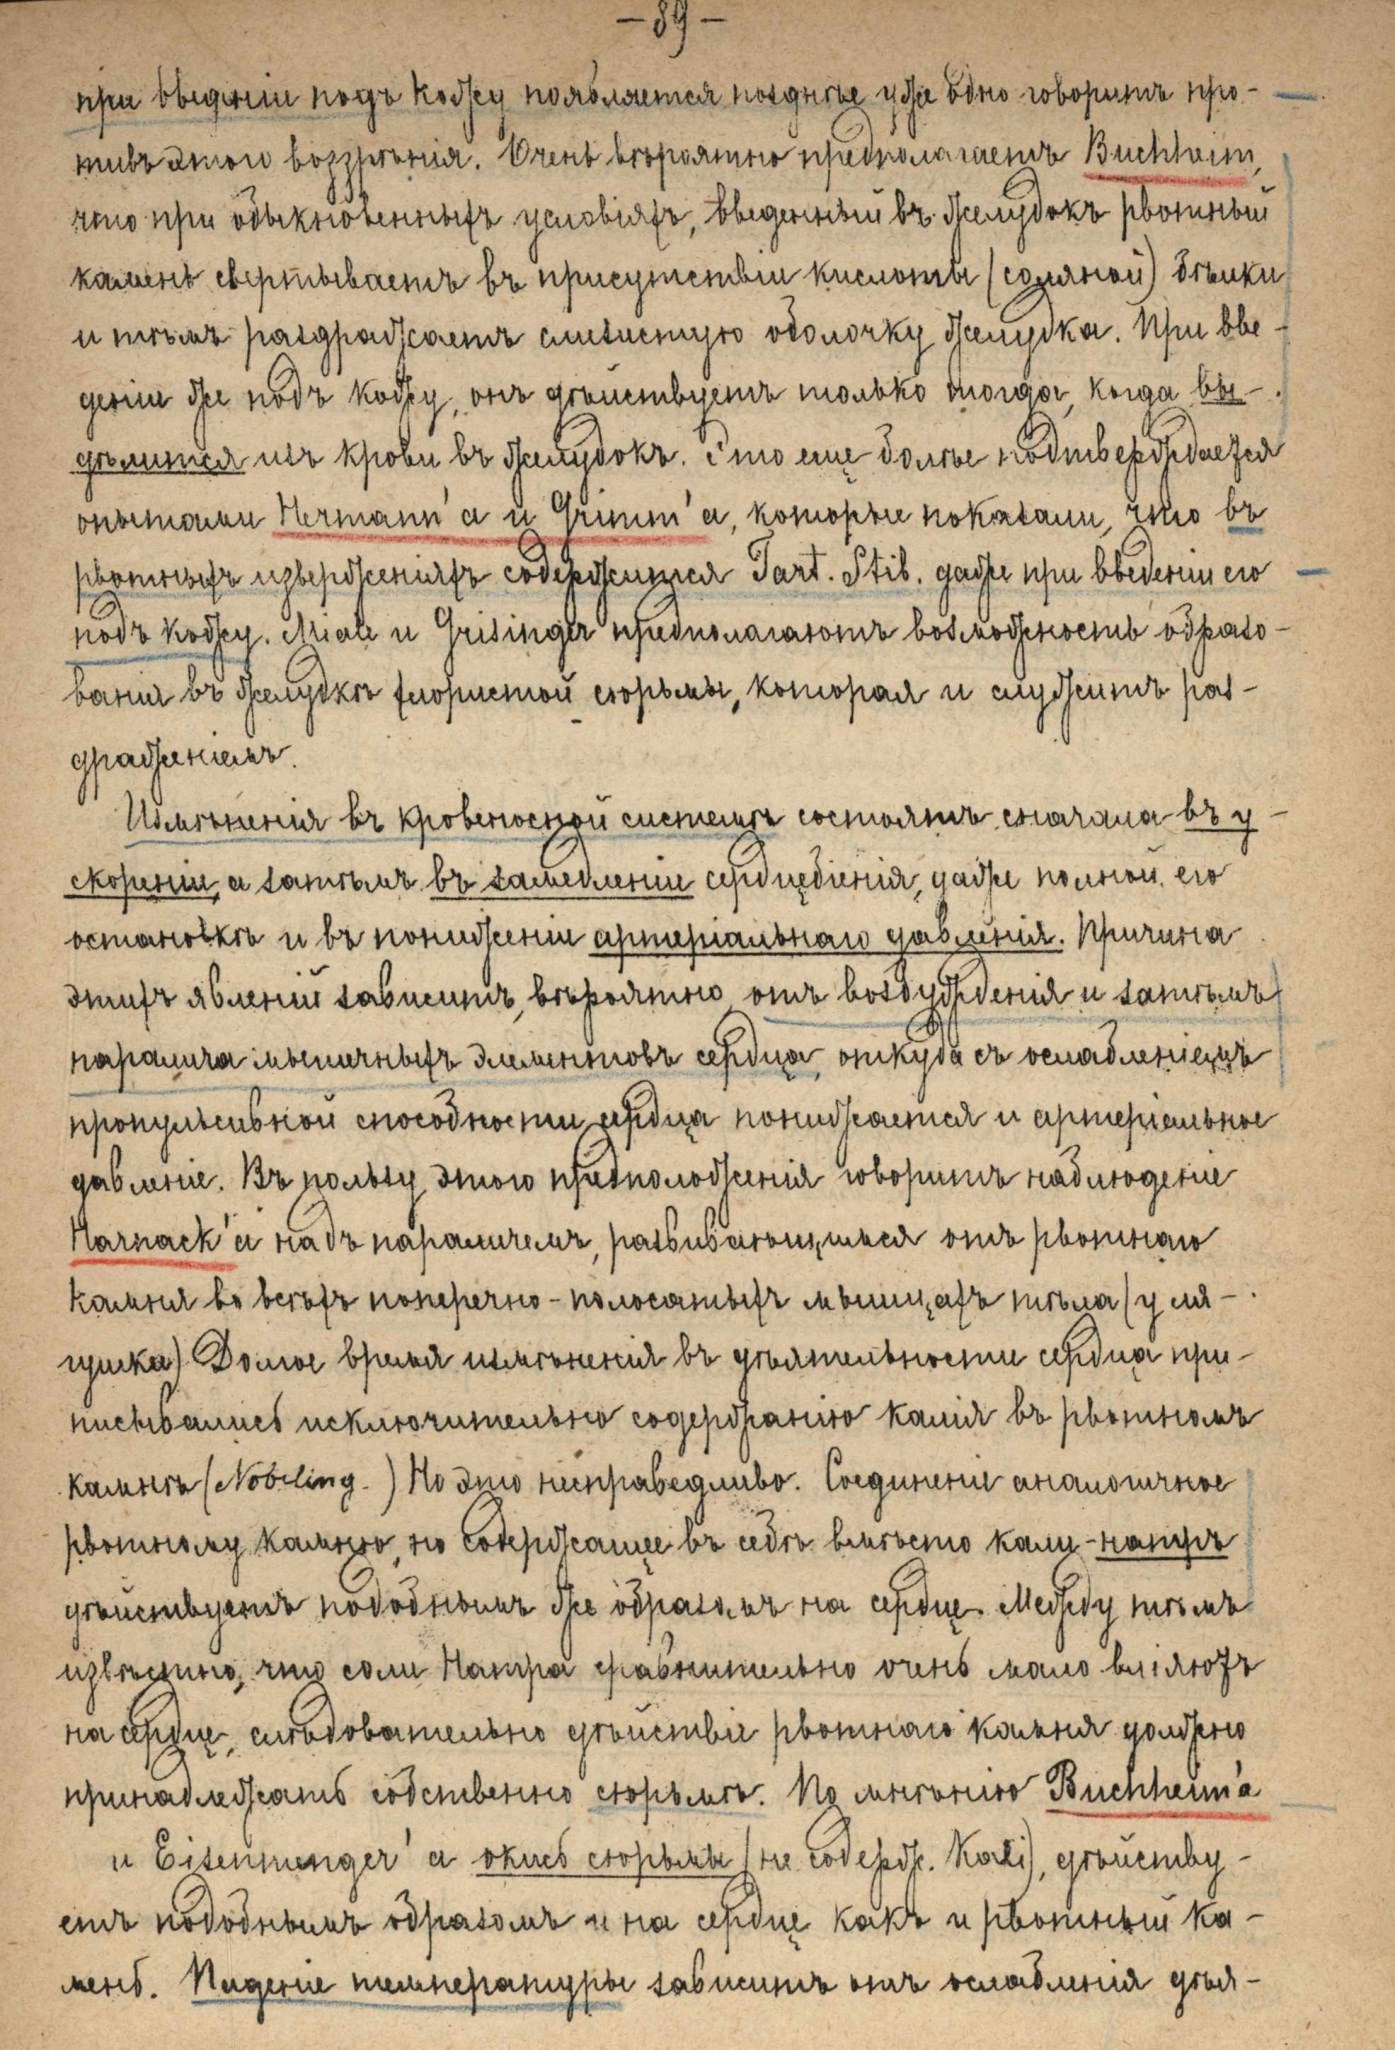 — 89 —
при введеніи подъ кожу появляется позднѣе уже одно говоритъ про-
тивъ этого воззрѣнія. Очень вѣроятно предполагаетъ Buchheim,
что при обыкновенныхъ условіяхъ, введенный въ желудокъ рвотный
камень свертываетъ въ присутствіи кислоты (соляной) бѣлки
и тѣмъ раздражаетъ слизистую оболочку желудка. При вве-
деніи же подъ кожу, онъ дѣйствуетъ только тогда, когда вы-
дѣлится изъ крови въ желудокъ. Это еще болѣе подтверждается
опытами Hermann'a и Grimm'a, которые показали, что въ
рвотныхъ изверженіяхъ содержится Tart. Stib. даже при введеніи его
подъ кожу. Miale и Grisinger предполагаютъ возможность образо-
ванія въ желудкѣ хлористой сюрьмы, которая и служитъ раз-
драженіемъ.
Измѣненія въ кровеносной системѣ состоятъ сначала въ у-
скореніи, а затѣмъ въ замедленіи сердцебіенія, даже полной его
остановкѣ и въ пониженіи артеріальнаго давленія. Причина
этихъ явленій зависитъ, вѣроятно, отъ возбужденія и затѣмъ
паралича мышечныхъ элементовъ сердца, откуда съ ослабленіемъ
пропульсивной способности сердца понижается и артеріальное
давленіе. Въ пользу этого предположенія говоритъ наблюденіе
Harnack'a надъ параличемъ, развивающимся отъ рвотнаго
камня во всѣхъ поперечно-полосатыхъ мышцахъ тѣла (у ля-
гушки) Долгое время измѣненія въ дѣятельности сердца при-
писывались исключительно содержанію калія въ рвотномъ
камнѣ (Nobeling.) Но это несправедливо. Соединеніе аналогичное
рвотному камню, но содержащее въ себѣ вмѣсто кали-натръ
дѣйствуетъ подобнымъ же образомъ на сердце. Между тѣмъ
извѣстно, что соли Натра сравнительно очень мало вліяютъ
на сердце, слѣдовательно дѣйствіе рвотнаго камня должно
принадлежать собственно сюрьмѣ. По мнѣнію Buchheim'a
и Eisenmenger'a окись сюрьмы (не содерж. Kali), дѣйству-
етъ подобнымъ образомъ и на сердце какъ и рвотный ка-
мень. Паденіе температуры зависитъ отъ ослабленія дѣя-